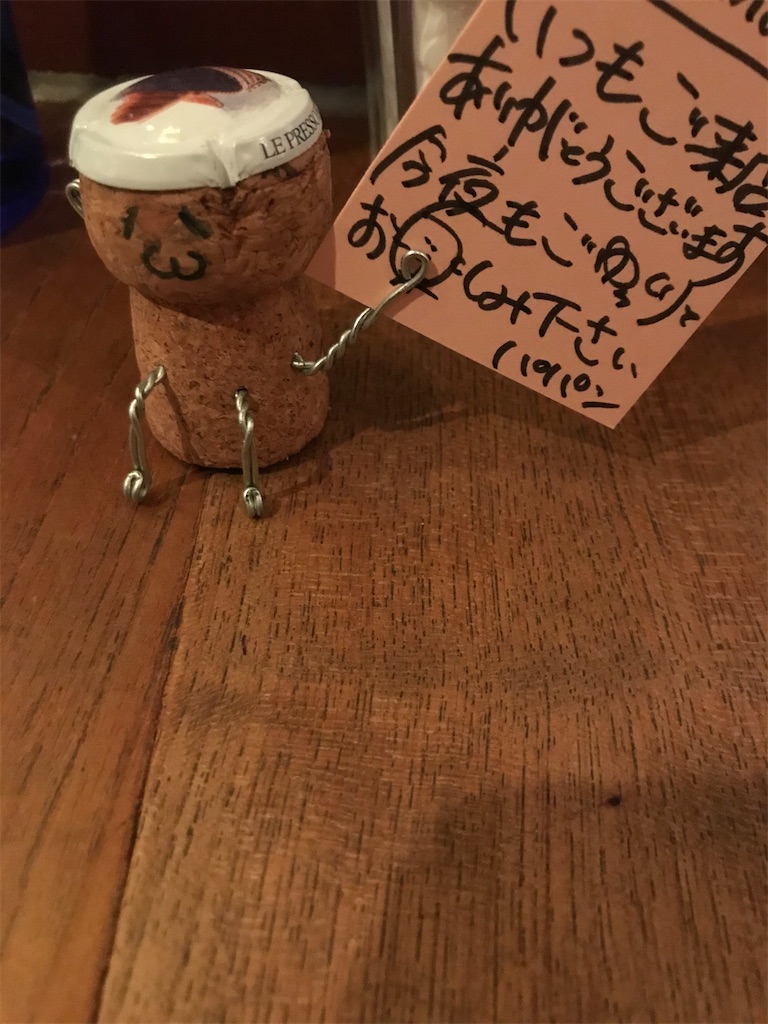 LE PRESS
いつもご来店
ありがとうございます
今夜もごゆっくり
お楽しみ下さい